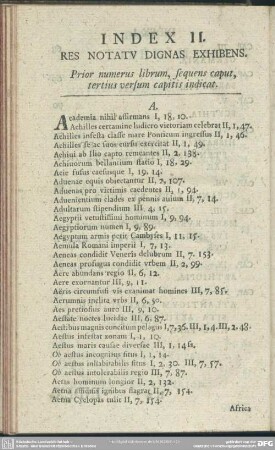 INDEX II.
RES NOTATV DIGNAS EXHIBENS.
Prior numerus librum, sequens caput,
tertius versum capitis indicat.
A.
Academia nihil affirmans I, 18, 10.
Achilles certamine ludicro victoriam celebrat II, 1, 47.
Achilles infesta classe mare Ponticum ingressus II, 1, 46.
Achilles se ac suos cursu exercitat II, 1, 49.
Achiui ab Ilio capto remeantes II, 2, 135.
Achiuorum bellantium statio I, 18, 29.
Acie fusus caesusque I, 19, 14.
Aduenae equis obiectantur II, 2, 107.
Aduenas pro victimis caedentes II, 1, 94.
Aduenientium clades ex pennis auium II, 7, 14.
Adultarum stipendium II, 4, 15.
Aegyptii vetustissimi hominum I, 9, 94.
Aegyptiorum nomen I, 9, 89.
Aegyptum armis petit Cambyses I, 11, 15.
Aemula Romani imperii I, 7, 13.
Aeneas condidit Veneris delubrum II, 7, 153.
Aeneas profugus condidit vrbem II, 2, 99.
Aere abundans regio II, 6, 12.
Aere exornantur III, 9, 11.
Aëris circumfusi vis exanimat homines III, 7, 85.
Aerumnis inclita vrbs II, 6, 50.
Aes pretiosius auro III, 9, 10.
Aestate noctes lucidae III, 6, 87.
Aestibus magnis concitum pelagus I, 7, 36. III, 1, 4. III, 2, 48.
Aestus infestat zonam I, 1, 10.
Aestus maris causae diuersae III, 1, 14 ss.
Ob aestus incognitus situs I, 1, 14.
Ob aestus inhabitabilis situs I, 2, 30. III, 7, 57.
Ob aestus intolerabilis regio III, 7, 87.
Aetas hominum longior II, 2, 132.
Aetna immanis ignibus flagrat II, 7, 154.
Aetna Cyclopas tulit II, 7, 154.
Africa